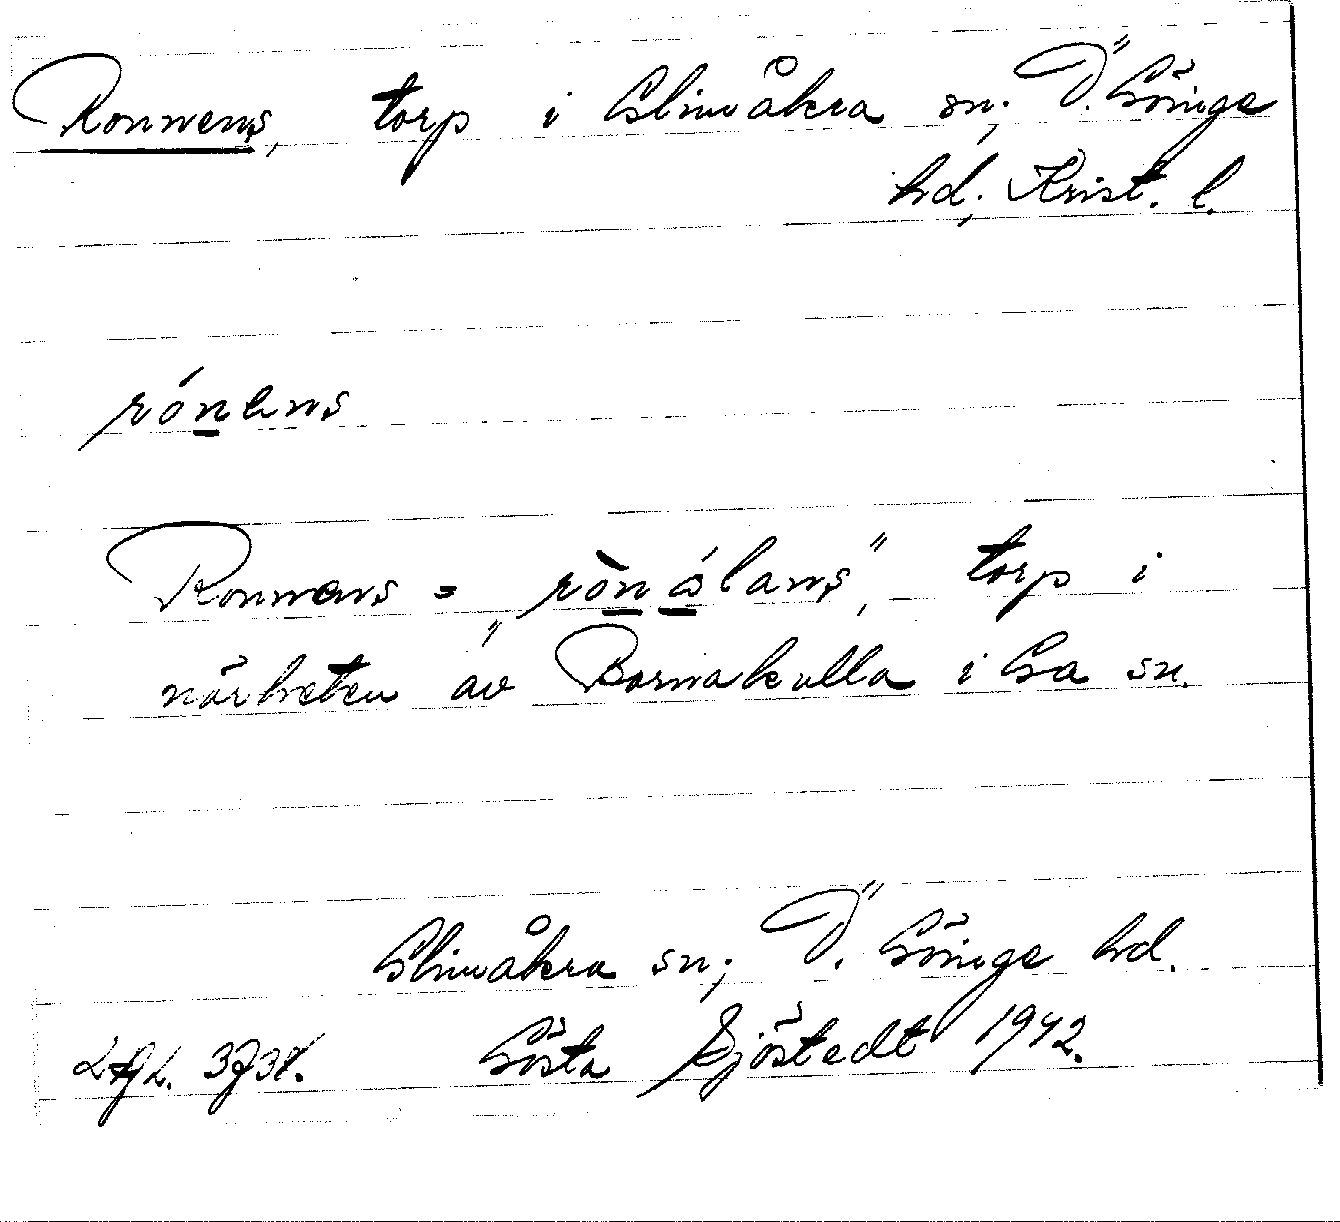 Ronnens, torp i Glimåkra sn; Ö. Göinge
hd; Krist. l.
rónens
Ronnens = "rònálans", torp i
närheten av Barnakulla i Ga sn.
Glimåkra sn; Ö. Göinge hd.
Gösta Sjöstedt 1942.